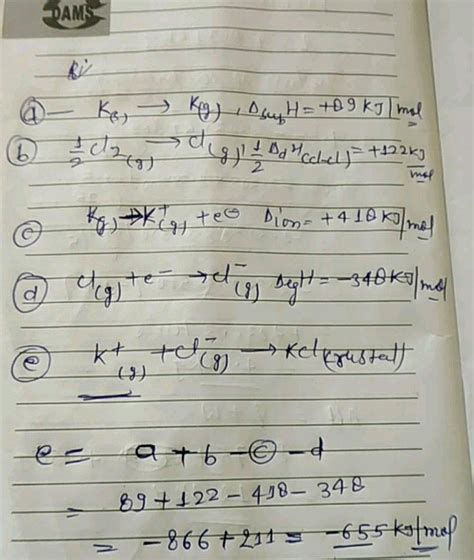 DAMS
(a) — K(s) → K(g), ΔsubH = +89 KJ/mol
(b) 1/2 Cl2(g) → Cl(g), 1/2 ΔdH(Cl-Cl) = +122 KJ/mol
(c) K(g) → K+(g) + e⊖ Δion = +418 KJ/mol
(d) Cl(g) + e- → Cl-(g) ΔegH = -348 KJ/mol
(e) K+(g) + Cl-(g) → KCl
e = a + b - (c) - d
= 89 + 122 - 418 - 348
= -866 + 211 = -655 KJ/mol